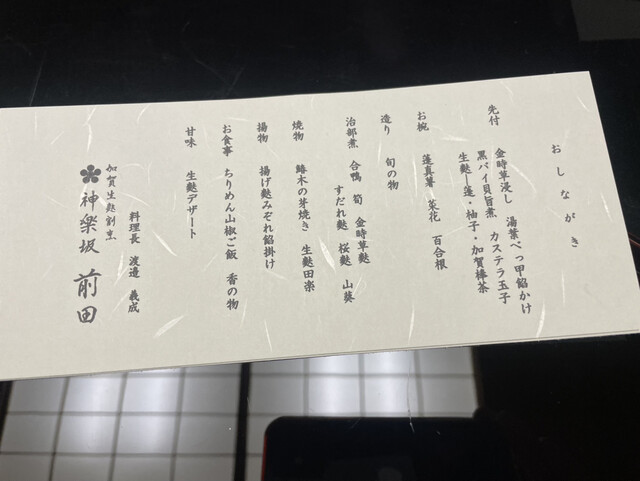 おしながき
先付　金時草浸し　湯葉べっ甲餡かけ
黒バイ貝旨煮　カステラ玉子
生麩―蓬・柚子・加賀棒茶
お椀　蓬真薯　菜花　百合根
造り　旬の物
治部煮　合鴨　筍　金時草麩
すだれ麩　桜麩　山葵
焼物　鰆木の芽焼き　生麩田楽
揚物　揚げ麩みぞれ餡掛け
お食事　ちりめん山椒ご飯　香の物
甘味　生麩デザート
料理長　渡邉　義成
加賀生麩割烹
神楽坂　前田